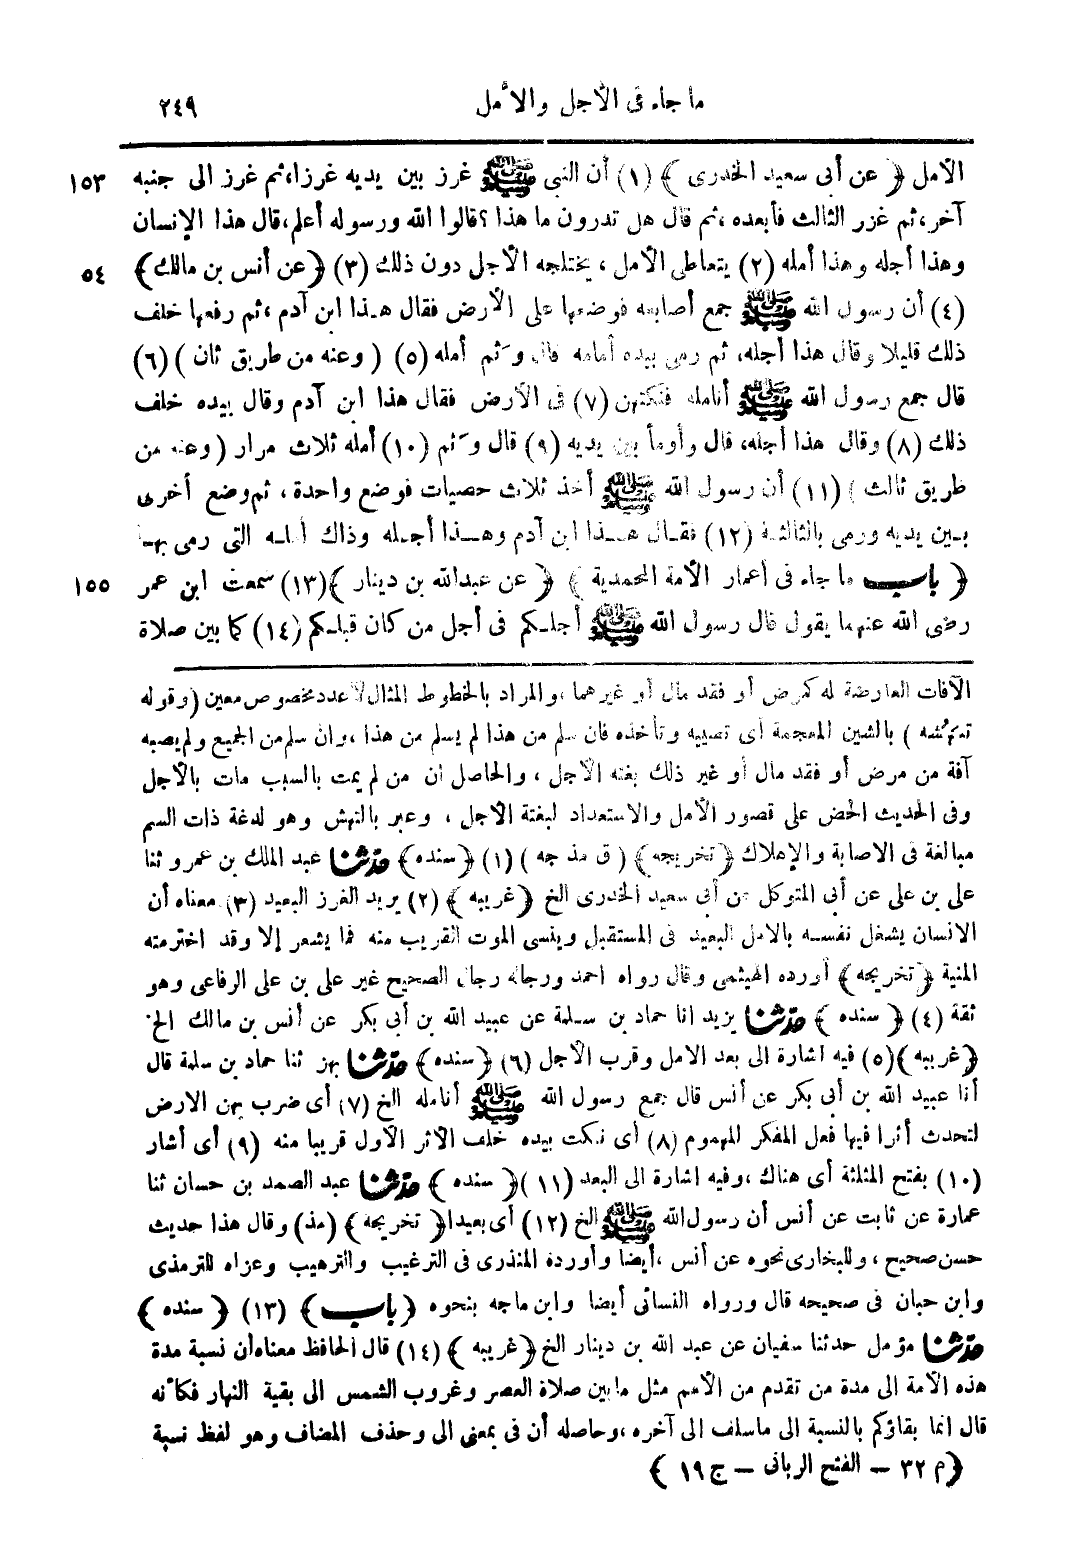 ما جاء فى الأجل والأمل ٢٤٩
الأمل ﴿ عن أبى سعيد الخدرى ﴾ (١) أن النبى ﷺ غرز بين يديه غرزا، ثم غرز الى جنبه ١٥٣
آخر، ثم غزر الثالث فأبعده، ثم قال هل تدرون ما هذا ؟ قالوا الله ورسوله أعلم، قال هذا الإنسان
وهذا أجله وهذا أمله (٢) يتعاطى الأمل، يختلجه الأجل دون ذلك (٣) ﴿ عن أنس بن مالك ﴾ ٥٤
(٤) أن رسول الله ﷺ جمع أصابعه فوضعها على الأرض فقال هذا ابن آدم، ثم رفعها خلف
ذلك قليلا وقال هذا أجله، ثم رمى بيده أمامه قال وثم أمله (٥) ( وعنه من طريق ثان ) (٦)
قال جمع رسول الله ﷺ أنامله فنكتهن (٧) فى الأرض فقال هذا ابن آدم وقال بيده خلف
ذلك (٨) وقال هذا أجله، قال وأومأ بين يديه (٩) قال وثم (١٠) أمله ثلاث مرار ( وعنه من
طريق ثالث ) (١١) أن رسول الله ﷺ أخذ ثلاث حصيات فوضع واحدة، ثم وضع أخرى
بين يديه ورمى بالثالثة (١٢) فقال هذا ابن آدم وهذا أجله وذاك أمله التى رمى بها
﴿ باب ما جاء فى أعمار الأمة المحمدية ﴾ ﴿ عن عبدالله بن دينار ﴾ (١٣) سمعت ابن عمر ١٥٥
رضى الله عنهما يقول قال رسول الله ﷺ أجلكم فى أجل من كان قبلكم (١٤) كما بين صلاة
الآفات العارضة له كمرض أو فقد مال أو غيرهما، والمراد بالخطوط المثال لا عدد مخصوص معين (وقوله
تنهشه ) بالشين المعجمة أى تصيبه وتأخذه فان سلم من هذا لم يسلم من هذا، وان سلم من الجميع ولم يصبه
آفة من مرض أو فقد مال أو غير ذلك بغته الأجل، والحاصل ان من لم يمت بالسبب مات بالأجل
وفى الحديث الحض على قصور الأمل والاستعداد لبغتة الأجل، وعبر بالنهش وهو لدغة ذات السم
مبالغة فى الاصابة والإهلاك ﴿ تخريجه ﴾ ( ق مذ جه ) (١) ﴿ سنده ﴾ حدثنا عبد الملك بن عمرو ثنا
على بن على عن أبى المتوكل عن أبى سعيد الخدرى الخ ﴿ غريبه ﴾ (٢) يريد الغرز البعيد (٣) معناه أن
الانسان يشغل نفسه بالامل البعيد فى المستقبل وينسى الموت القريب منه فما يشعر إلا وقد اخترمته
المنية ﴿ تخريجه ﴾ أورده الهيثمى وقال رواه احمد ورجاله رجال الصحيح غير على بن على الرفاعى وهو
ثقة (٤) ﴿ سنده ﴾ حدثنا يزيد انا حماد بن سلمة عن عبيد الله بن أبى بكر عن أنس بن مالك الخ
﴿ غريبه ﴾ (٥) فيه اشارة الى بعد الامل وقرب الأجل (٦) ﴿ سنده ﴾ حدثنا بهز ثنا حماد بن سلمة قال
أنا عبيد الله بن أبى بكر عن أنس قال جمع رسول الله ﷺ أنامله الخ (٧) أى ضرب بهن الارض
لتحدث أثرا فيها فعل المفكر المهموم (٨) أى نكت بيده خلف الاثر الأول قريبا منه (٩) أى أشار
(١٠) بفتح المثلثة أى هناك، وفيه اشارة الى البعد (١١) ﴿ سنده ﴾ حدثنا عبد الصمد بن حسان ثنا
عمارة عن ثابت عن أنس أن رسول الله ﷺ الخ (١٢) أى بعيدا ﴿ تخريجه ﴾ (مذ) وقال هذا حديث
حسن صحيح، وللبخارى نحوه عن أنس، أيضا وأورده المنذرى فى الترغيب والترهيب وعزاه للترمذى
وابن حبان فى صحيحه قال ورواه النسائى أيضا وابن ماجه بنحوه ﴿ باب ﴾ (١٣) ﴿ سنده ﴾
حدثنا مؤمل حدثنا سفيان عن عبد الله بن دينار الخ ﴿ غريبه ﴾ (١٤) قال الحافظ معناه أن نسبة مدة
هذه الأمة الى مدة من تقدم من الأمم مثل ما بين صلاة العصر وغروب الشمس الى بقية النهار فكأنه
قال انما بقاؤكم بالنسبة الى ما سلف الى آخره، وحاصله أن فى بمعنى الى وحذف المضاف وهو لفظ نسبة
﴿ م ٣٢ – الفتح الربانى – ج ١٩ ﴾